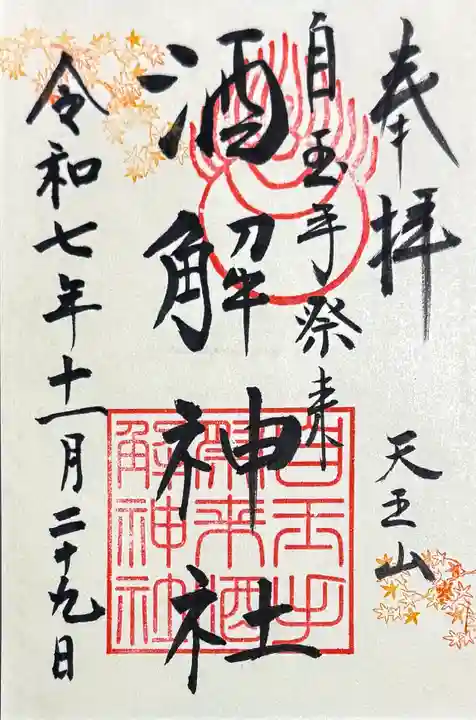 奉拝
天王山
自玉手祭来
酒解神社
令和七年十一月二十九日
自玉手
祭来酒
解神社